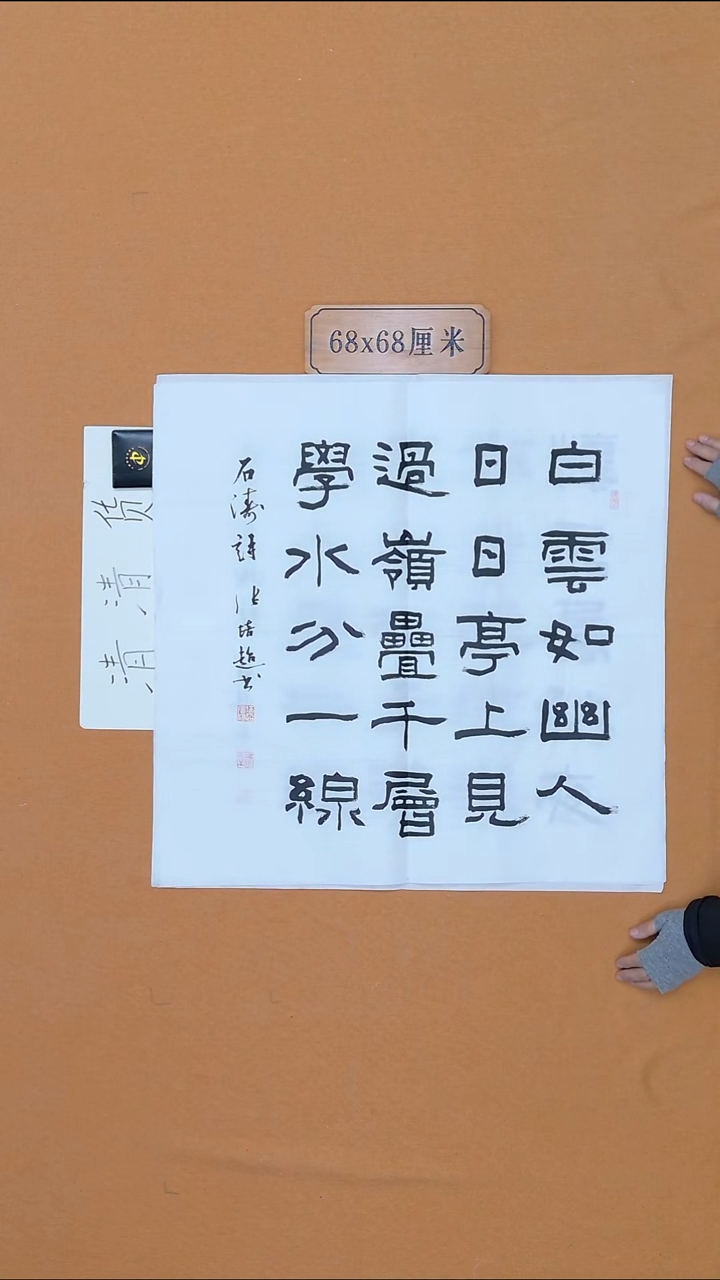 68x68厘米
白雲如幽人
日日亭上見
過嶺疊千層
學水分一線
石濤詩 张培超书
清清货